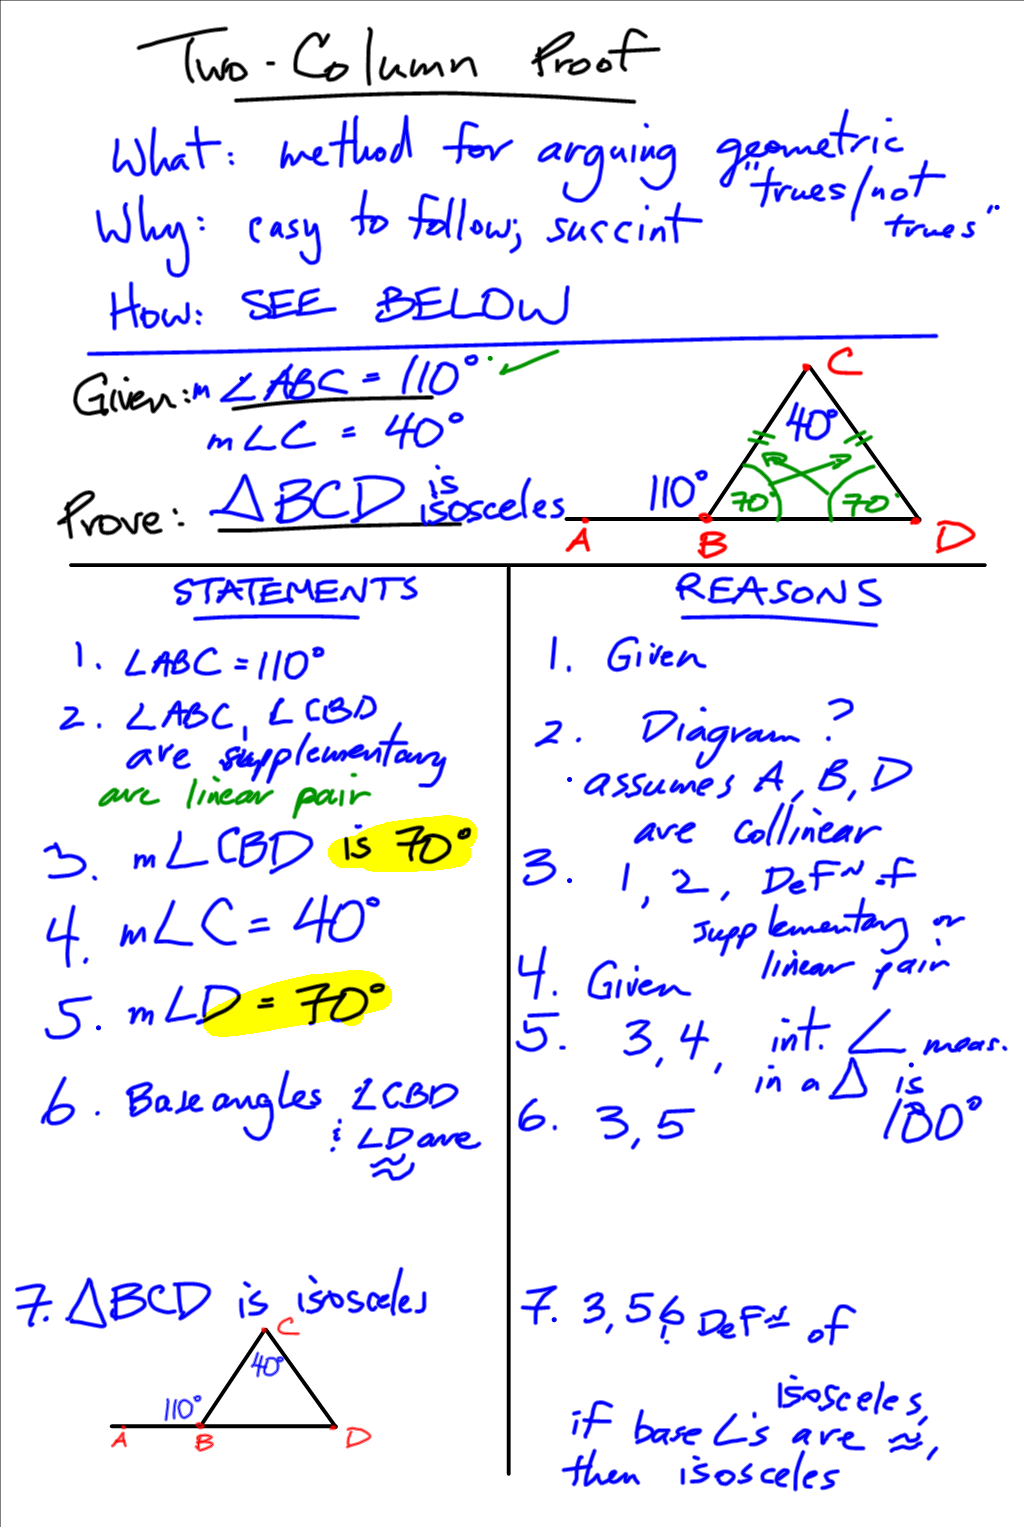 Two-Column Proof
What: method for arguing geometric
"trues/not
trues"
Why: easy to follow; succint
How: SEE BELOW
Given: m∠ABC = 110°
m∠C = 40°
Prove: △BCD is
isosceles
C
40°
110°
70°
70°
A
B
D
STATEMENTS
1. ∠ABC = 110°
2. ∠ABC, ∠CBD
are supplementary
are linear pair
3. m∠CBD is 70°
4. m∠C = 40°
5. m∠D = 70°
6. Base angles ∠CBD
& ∠D are
≈
7. △BCD is isosceles
C
40°
110°
A
B
D
REASONS
1. Given
2. Diagram?
assumes A, B, D
are collinear
3. 1, 2, DeF~ of
supplementary or
linear pair
4. Given
5. 3, 4, int. ∠ meas.
in a △ is
180°
6. 3, 5
7. 3, 5, 6 DeF~ of
isosceles,
if base ∠'s are ≈,
then isosceles